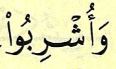 وَأُشۡرِبُواْ